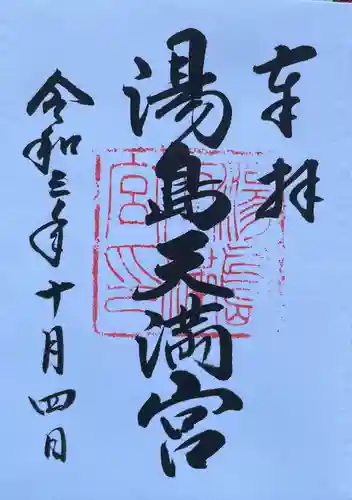 奉拝
湯島天満宮
令和三年十月四日